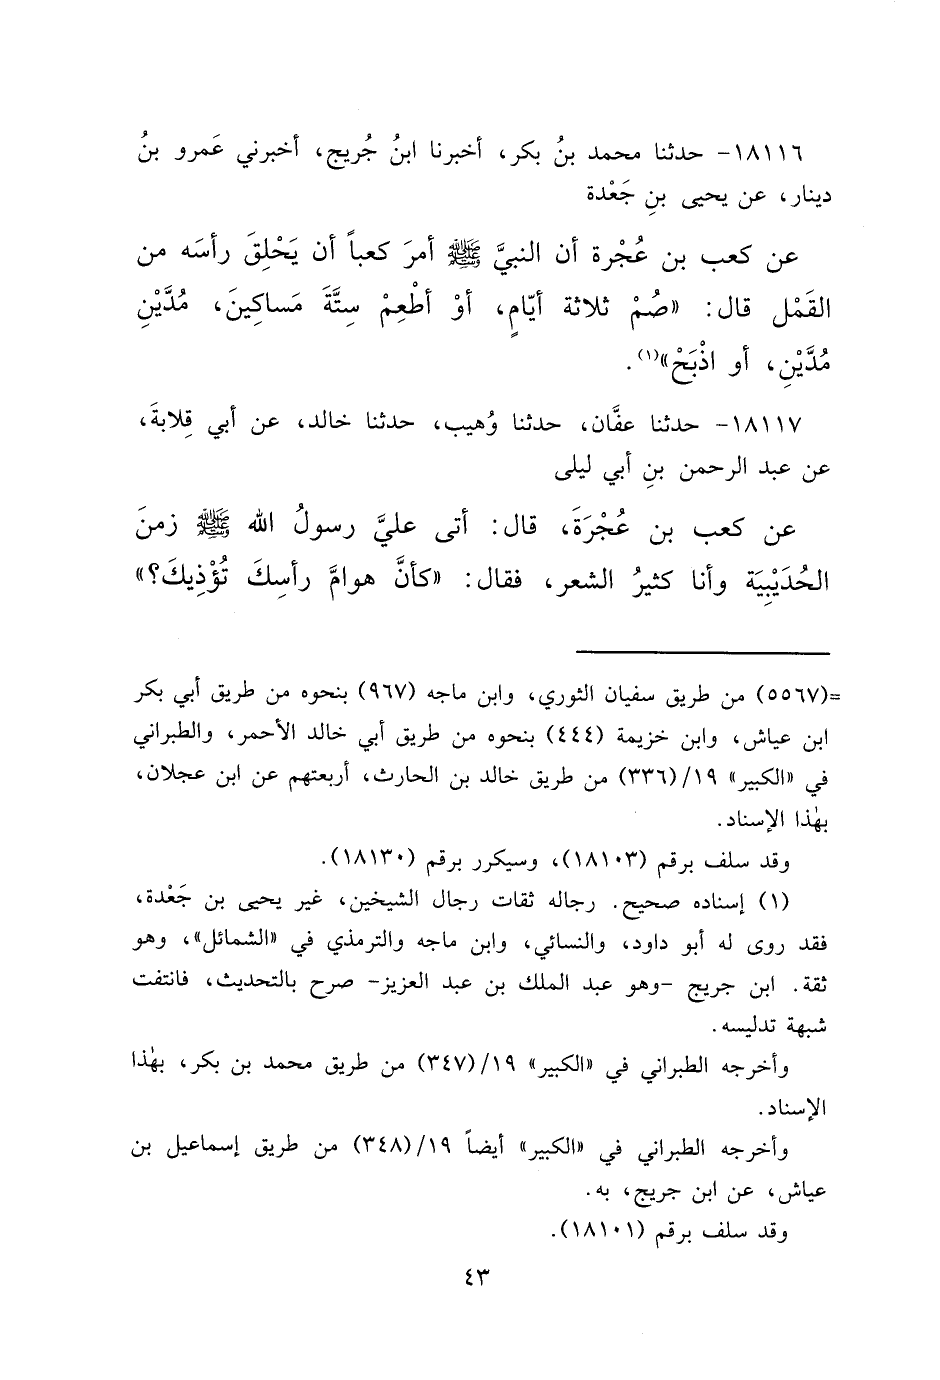 ١٨١١٦- حدثنا محمد بنُ بكر، أخبرنا ابنُ جُريج، أخبرني عَمرو بنُ
دينار، عن يحيى بنِ جَعْدة
عن كعب بن عُجْرة أن النبيَّ ﷺ أمرَ كعباً أن يَحْلِقَ رأسَه من
القَمْل قال: «صُمْ ثلاثة أيّامٍ، أوْ أطْعِمْ سِتَّةَ مَساكِينَ، مُدَّيْنِ
مُدَّيْنِ، أو اذْبَحْ»(١).
١٨١١٧- حدثنا عفَّان، حدثنا وُهيب، حدثنا خالد، عن أبي قِلابةَ،
عن عبد الرحمن بنِ أبي ليلى
عن كعب بن عُجْرَةَ، قال: أتى عليَّ رسولُ الله ﷺ زمنَ
الحُدَيْبِيَة وأنا كثيرُ الشعر، فقال: «كأنَّ هوامَّ رأسِكَ تُؤْذِيكَ؟»
=(٥٥٦٧) من طريق سفيان الثوري، وابن ماجه (٩٦٧) بنحوه من طريق أبي بكر
ابن عياش، وابن خزيمة (٤٤٤) بنحوه من طريق أبي خالد الأحمر، والطبراني
في «الكبير» ١٩/(٣٣٦) من طريق خالد بن الحارث، أربعتهم عن ابن عجلان،
بهٰذا الإسناد.
وقد سلف برقم (١٨١٠٣)، وسيكرر برقم (١٨١٣٠).
(١) إسناده صحيح. رجاله ثقات رجال الشيخين، غير يحيى بن جَعْدة،
فقد روى له أبو داود، والنسائي، وابن ماجه والترمذي في «الشمائل»، وهو
ثقة. ابن جريج -وهو عبد الملك بن عبد العزيز- صرح بالتحديث، فانتفت
شبهة تدليسه.
وأخرجه الطبراني في «الكبير» ١٩/(٣٤٧) من طريق محمد بن بكر، بهٰذا
الإسناد.
وأخرجه الطبراني في «الكبير» أيضاً ١٩/(٣٤٨) من طريق إسماعيل بن
عياش، عن ابن جريج، به.
وقد سلف برقم (١٨١٠١).
٤٣